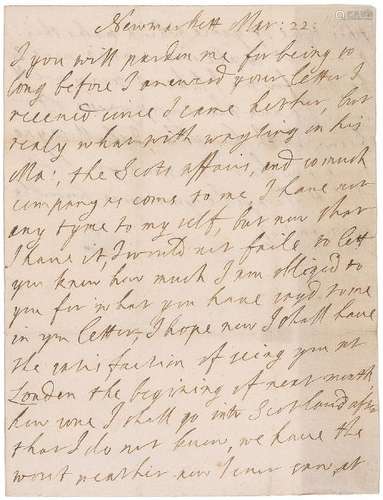 Newmarkett Mar: 22:
I you will pardon me for being so
long before I answerd your letter I
receued since I came hether, but
realy what with wryting in his
Ma: the Scots affairs, and so much
company as coms to me, I have not
any tyme to my self, but now that
I have it, I would not faile to lett
you know how much I am obliged to
you for what you have sayd to me
in yr letter, I hope now I shall have
the satisfaction of seing you at
London the begining of next month
how sone I shall go into Scotland after
that I do not know, we have the
worst weather now I ever saw, at